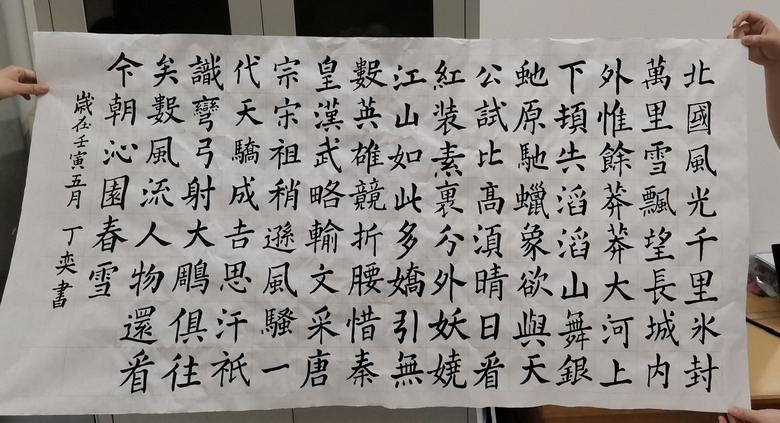 北國風光千里氷封
萬里雪飄望長城内
外惟餘莽莽大河上
下頓失滔滔山舞銀
虵原馳蠟象欲與天
公試比髙須晴日看
紅装素裹分外妖嬈
江山如此多嬌引無
數英雄競折腰惜秦
皇漢武略輸文采唐
宗宋祖稍遜風騷一
代天驕成吉思汗祇
識彎弓射大鵰俱往
矣數風流人物還看
今朝沁園春雪
歲在壬寅五月丁奕書